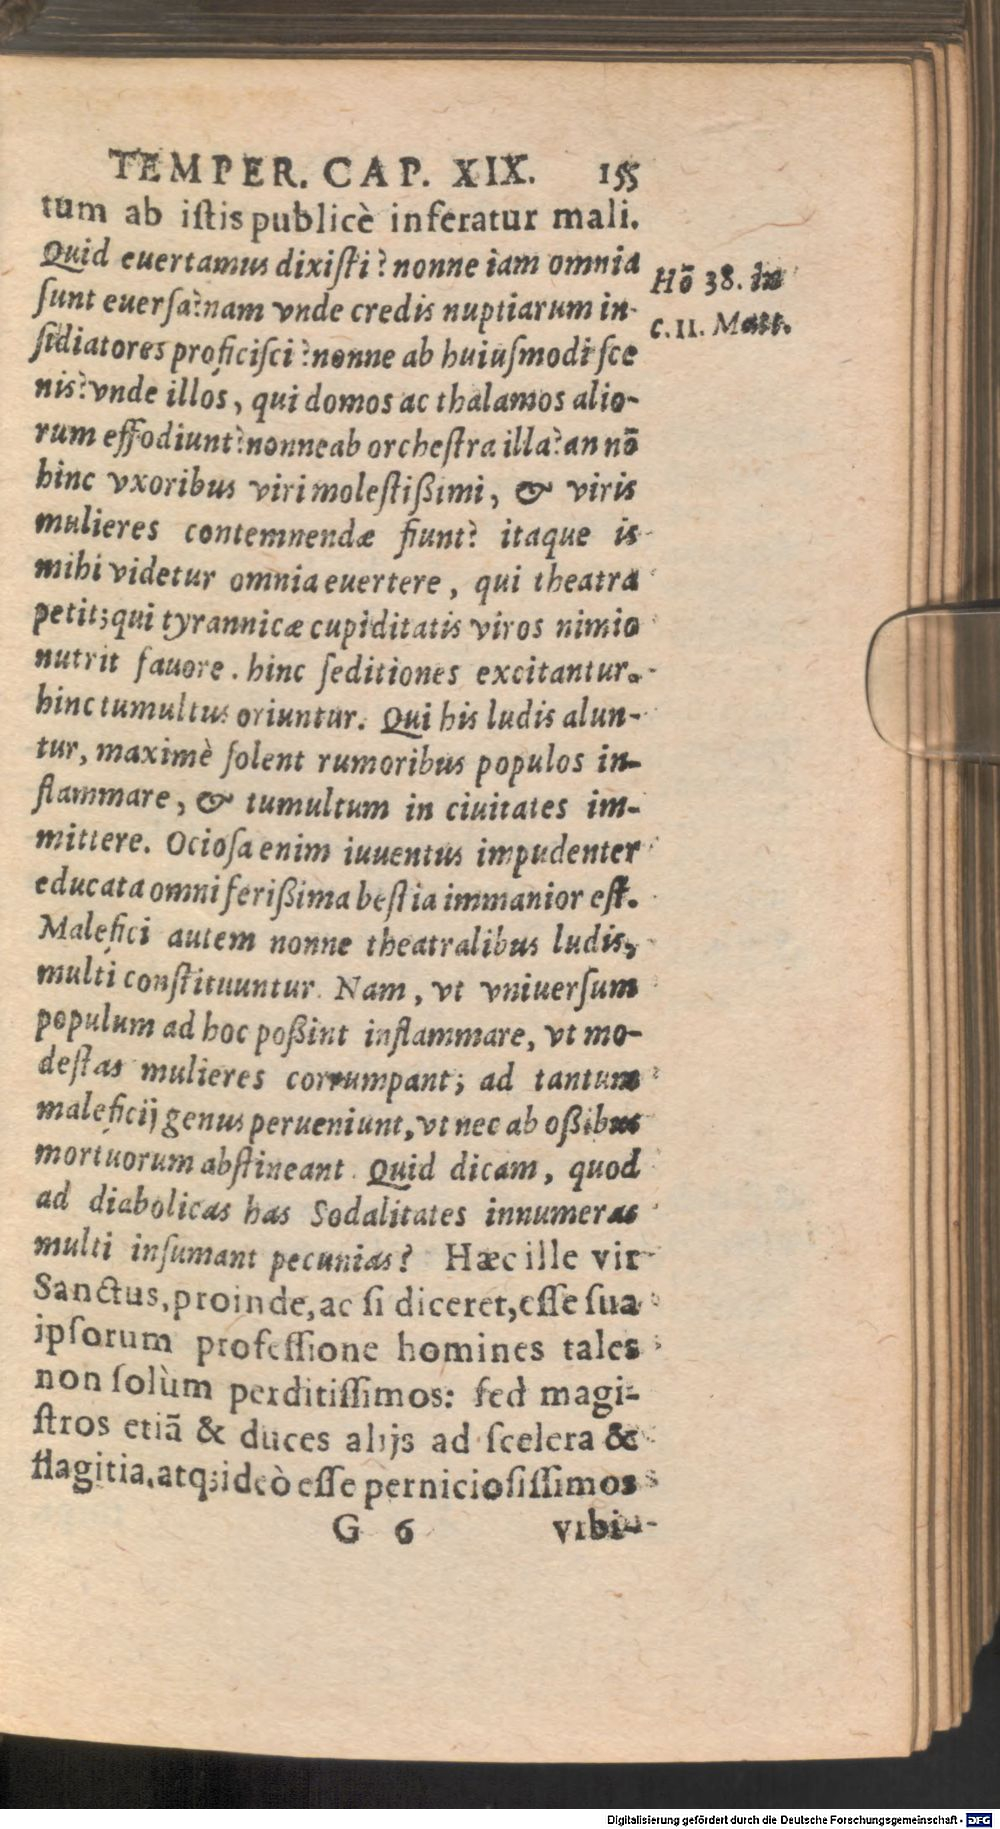 TEMPER. CAP. XIX. 155
tum ab iſtis publicè inferatur mali.
Quid euertamus dixiſti? nonne iam omnia
ſunt euerſa? nam vnde credis nuptiarum in-
ſidiatores proficiſci? nonne ab huiuſmodi ſce
nis? vnde illos, qui domos ac thalamos alio-
rum effodiunt? nonne ab orcheſtra illa? an nō
hinc vxoribus viri moleſtißimi, & viris
mulieres contemnendæ fiunt? itaque is
mihi videtur omnia euertere, qui theatra
petit; qui tyrannicæ cupiditatis viros nimio
nutrit fauore. hinc ſeditiones excitantur.
hinc tumultus oriuntur. Qui his ludis alun-
tur, maximè ſolent rumoribus populos in-
flammare, & tumultum in ciuitates im-
mittere. Ocioſa enim iuuentus impudenter
educata omni ferißima beſtia immanior eſt.
Malefici autem nonne theatralibus ludis,
multi conſtituuntur. Nam, vt vniuerſum
populum ad hoc poßint inflammare, vt mo-
deſtas mulieres corrumpant; ad tantum
maleficij genus perueniunt, vt nec ab oßibus
mortuorum abſtineant. Quid dicam, quod
ad diabolicas has Sodalitates innumeras
multi inſumant pecunias? Hæc ille vir
Sanctus, proinde, ac ſi diceret, eſſe ſua
ipſorum profeſſione homines tales
non ſolùm perditiſſimos: ſed magi-
ſtros etiā & duces alijs ad ſcelera &
flagitia, atq; ideò eſſe pernicioſiſſimos
G 6 vrbi-
Hō 38. in
c. 11. Matt.
Digitalisierung gefördert durch die Deutsche Forschungsgemeinschaft - DFG